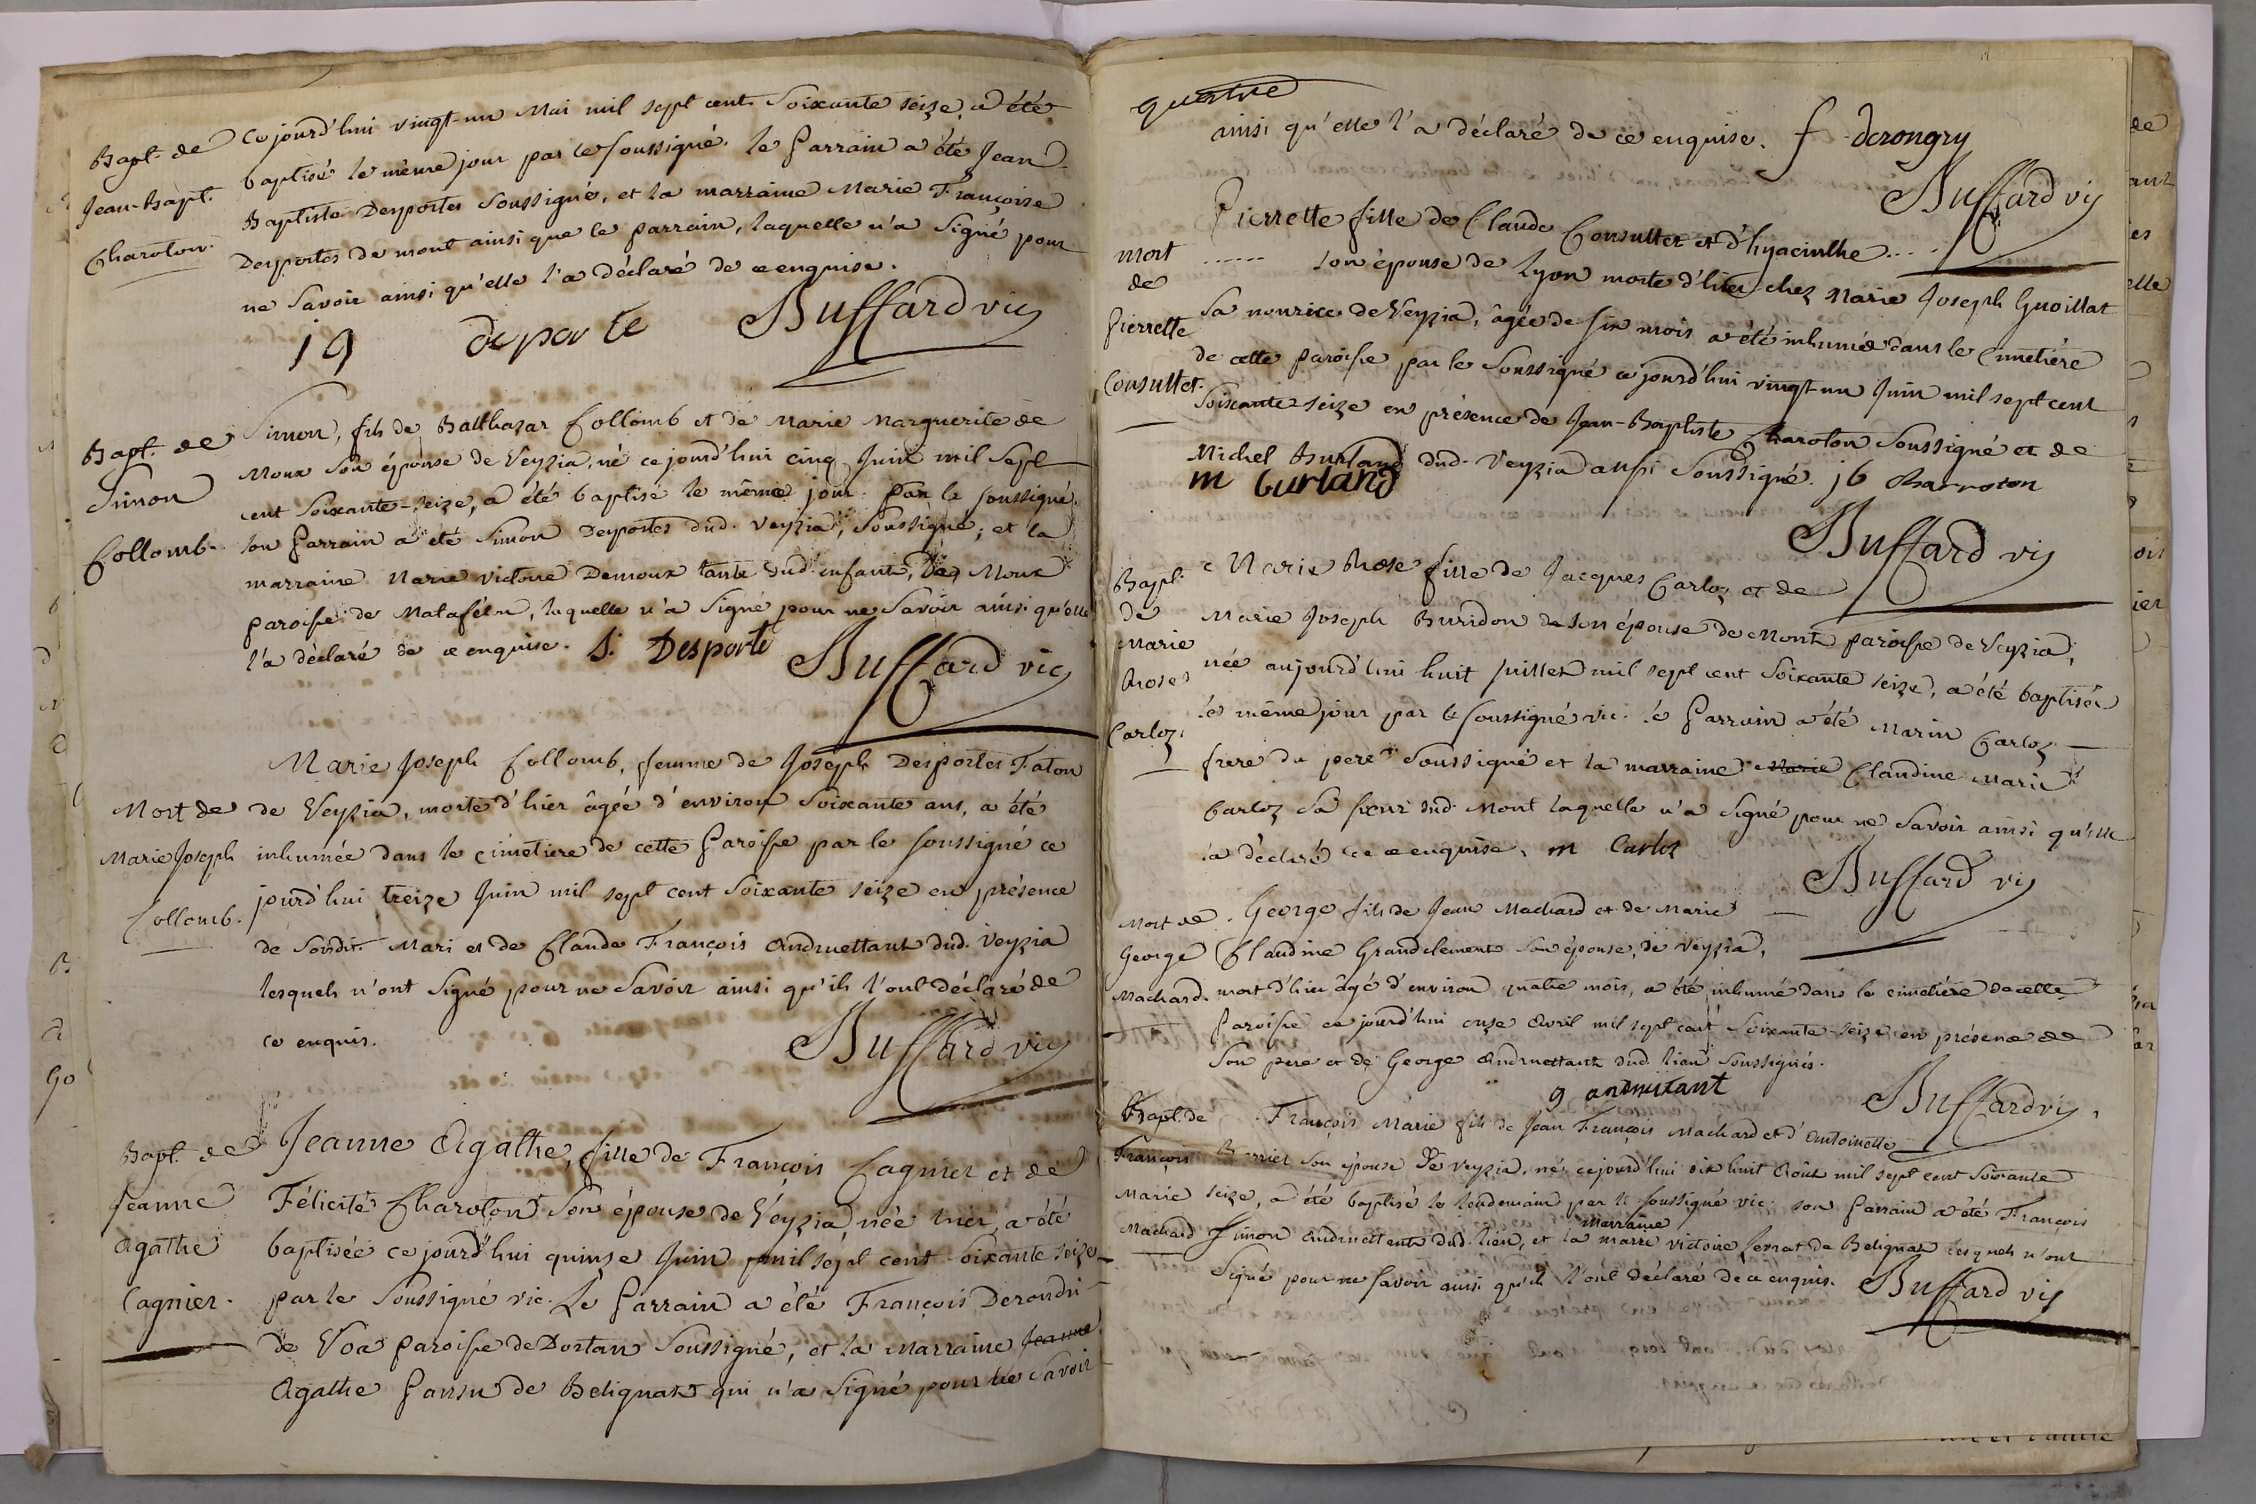 Bapt. de
Jean-Bapt.
Charoton.
ce jourd'hui vingt-un Mai mil sept cent Soixante seize, a été
baptisé le même jour par le soussigné. le Parrain a été Jean-
Baptiste Desportes Soussigné, et la marraine Marie Françoise
Desportes de mont ainsi que le parrain, laquelle n'a Signé pour
ne Savoir ainsi qu'elle l'a déclaré de ce enquise.
deporte Buffard vic
Bapt. de
Simon
Collomb.
Simon, fils de Balthazar Collomb et de Marie Marguerite de
Moux Son épouse de Veyzia, né ce jourd'hui cinq Juin mil Sept
cent Soixante-seize, a été baptisé le même jour. par le soussigné.
Son Parrain a été Simon Desportes dud. Veyzia, Soussigné, et la
marraine Marie victoire Demoux tante dud. enfant, de Moux
paroisse de Matafélon, laquelle n'a Signé pour ne Savoir ainsi qu'elle
l'a déclaré de ce enquise. S. Desporte Buffard vic
Mort de
Marie Joseph
Collomb.
Marie Joseph Collomb, femme de Joseph Desportes Faton
de Veyzia, morte d'hier âgée d'environ Soixante ans, a été
inhumée dans le cimetiere de cette Paroisse par le soussigné ce
jourd'hui treize Juin mil sept cent Soixante seize en présence
de Sondit Mari et de Claude François Andruettant dud. Veyzia
lesquels n'ont Signé pour ne Savoir ainsi qu'ils l'ont déclaré de
ce enquis. Buffard vic
Bapt. de
Jeanne
Agathe
Cagnier.
Jeanne Agathe, fille de François Cagnier et de
Félicité Charoton Son épouse de Veyzia née hier, a été
baptisée ce jourd'hui quinze Juin mil sept cent soixante seize
par le Soussigné vic. Le Parrain a été François Derondri
de Voa paroisse de Dortan Soussigné, et la Marraine Jeanne
Agathe Pansu de Belignat qui n'a Signé pour ne Savoir
quatre
ainsi qu'elle l'a déclaré de ce enquise. f derongry
Buffard vic
mort
de
Pierrette
Consultet.
Pierrette fille de Claude Consultet et d'hyacinthe....
...... son épouse de Lyon morte d'hier chez Marie Joseph Guoillat
Sa nourice de Veyzia, âgée de six mois a été inhumée dans le Cimetière
de cette paroisse par le Soussigné ce jourd'hui vingt-un Juin mil sept cent
Soixante-seize en présence de Jean-Baptiste Charoton Soussigné et de
Michel Burland dud. Veyzia aussi Soussigné. jb Charroton
m burland
Buffard vic
Bapt.
de
Marie
Rose
Carloz.
Marie Rose fille de Jacques Carloz et de
Marie Joseph Buridon de son épouse de Mont paroisse de Veyzia,
née aujourd'hui huit Juillet mil sept cent Soixante seize, a été baptisée
le même jour par le soussigné vic. le Parrain a été Marin Carloz
frere du pere Soussigné et la marraine Marie Claudine Marie
Carloz Sa sœur dud. Mont laquelle n'a Signé pour ne Savoir ainsi qu'elle
l'a déclaré de ce enquise. m Carloz
Buffard vic
Mort de
George
Machard.
George fils de Jean Machard et de Marie
Claudine Grandclement Son épouse, de Veyzia,
mort d'hier âgé d'environ quatre mois, a été inhumé dans le cimetière de cette
Paroisse ce jourd'hui onze Avril mil sept cent Soixante-seize en présence de
Son pere et de George Andruettant dud. lieu Soussignés.
g andruitant Buffard vic
Bapt. de
François
Marie
Machard
François Marie fils de Jean François Machard et d'Antoinette
Berrier Son épouse de Veyzia, né ce jourd'hui dix huit Août mil sept cent Soixante
seize, a été baptisé le lendemain par le soussigné vic. son Parrain a été François
marraine
Simon Andruettant dud. lieu, et la marre victoire de Belignat lesquels n'ont
Signé pour ne Savoir ainsi qu'ils l'ont déclaré de ce enquis. Buffard vic